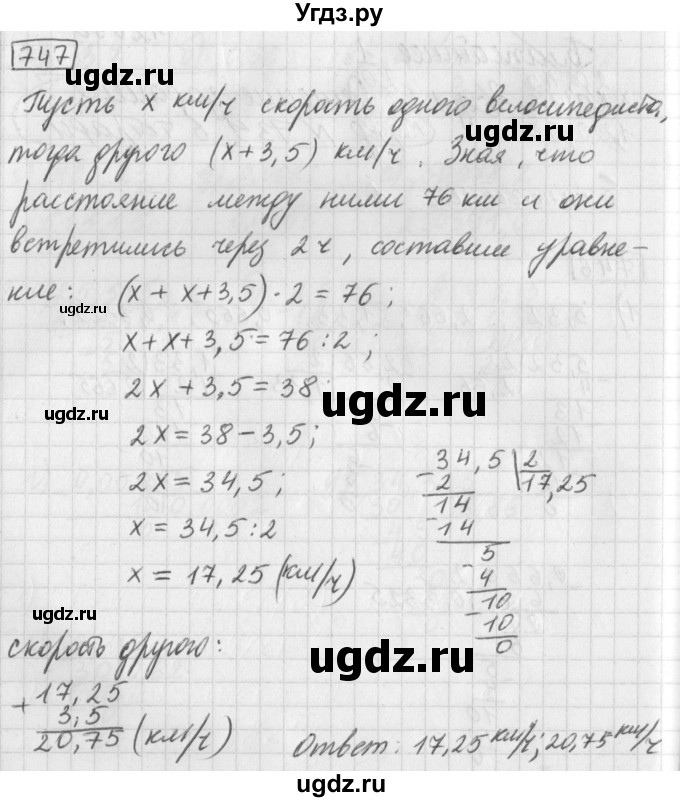 Угдз.ру
747
ugdz.ru
Пусть x км/ч скорость одного велосипедиста,
ugdz.ru
тогда другого (x+3,5) км/ч. Зная, что
расстояние между ними 76 км и они
ugdz.ru
встретились через 2 ч, составим уравне-
ние: (x + x+3,5)·2 = 76;
x+x+3,5=76:2;
2x+3,5=38;
ugdz.ru
ugdz.ru
2x=38-3,5;
2x=34,5;
x=34,5:2
x=17,25 (км/ч)
34,5 | 2
- 2
17,25
14
- 14
5
- 4
10
- 10
0
ugdz.ru
скорость другого:
ugdz.ru
+ 17,25
3,5
20,75 (км/ч)
Ответ: 17,25 км/ч; 20,75 км/ч
ugdz.ru